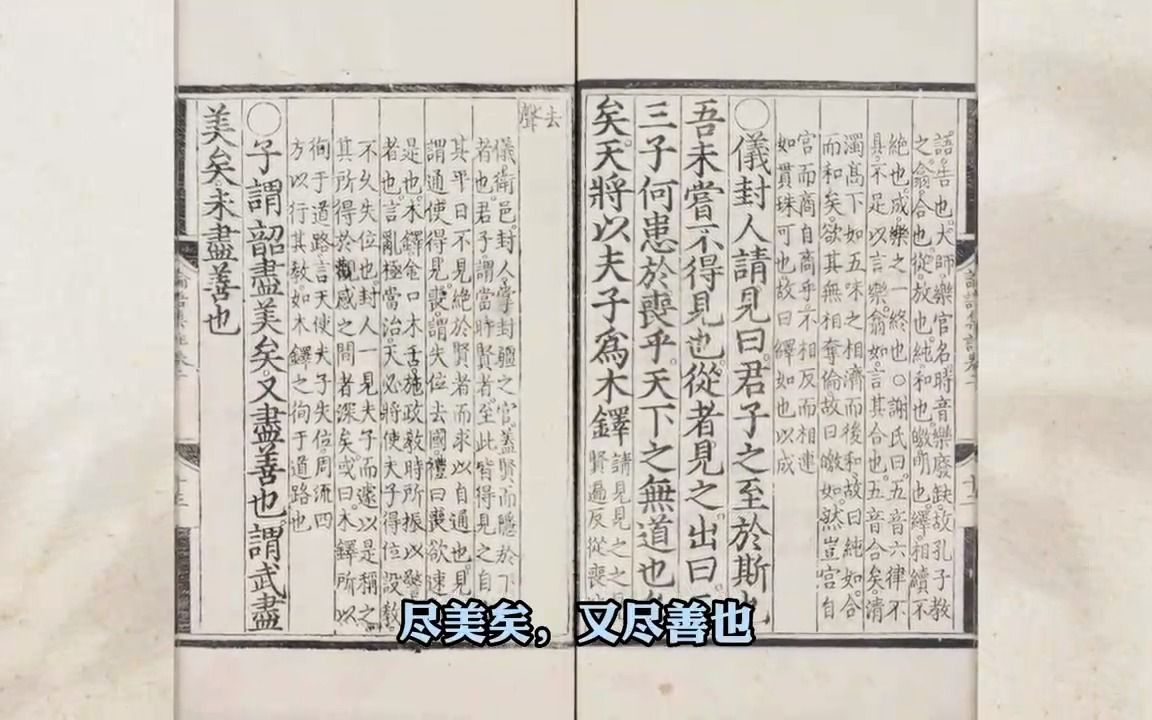 語告也大師樂官名時音樂廢缺故孔子教
之翕合也從放也純和也皦明也繹相續不
絶也成樂之一終也〇謝氏曰五音六律不
具不足以言樂翕如言其合也五音合矣清
濁髙下如五味之相濟而後和故曰純如合
而和矣欲其無相奪倫故曰皦如然豈宮自
宮而商自商乎不相反而相連
如貫珠可也故曰繹如也以成
〇儀封人請見曰君子之至於斯也
吾未嘗不得見也從者見之出曰二
三子何患於喪乎天下之無道也久
矣天將以夫子爲木鐸
請見見之之見
賢遍反從喪
去聲
儀衛邑封人掌封疆之官蓋賢而隱於下
者也君子謂當時賢者至此皆得見之自
其平日不見絶於賢者而求以自通也見
謂通使得見喪謂失位去國禮曰喪欲速
是也木鐸金口木舌施政教時所振以
者也言亂極當治天必將使夫子得位設教
不久失位也封人一見夫子而遽以是稱之
其所得於觀感之間者深矣或曰木鐸所以
徇于道路言天使夫子失位周流四
方以行其教如木鐸之徇于道路也
〇子謂韶盡美矣又盡善也謂武盡
美矣未盡善也
尽美矣，又尽善也